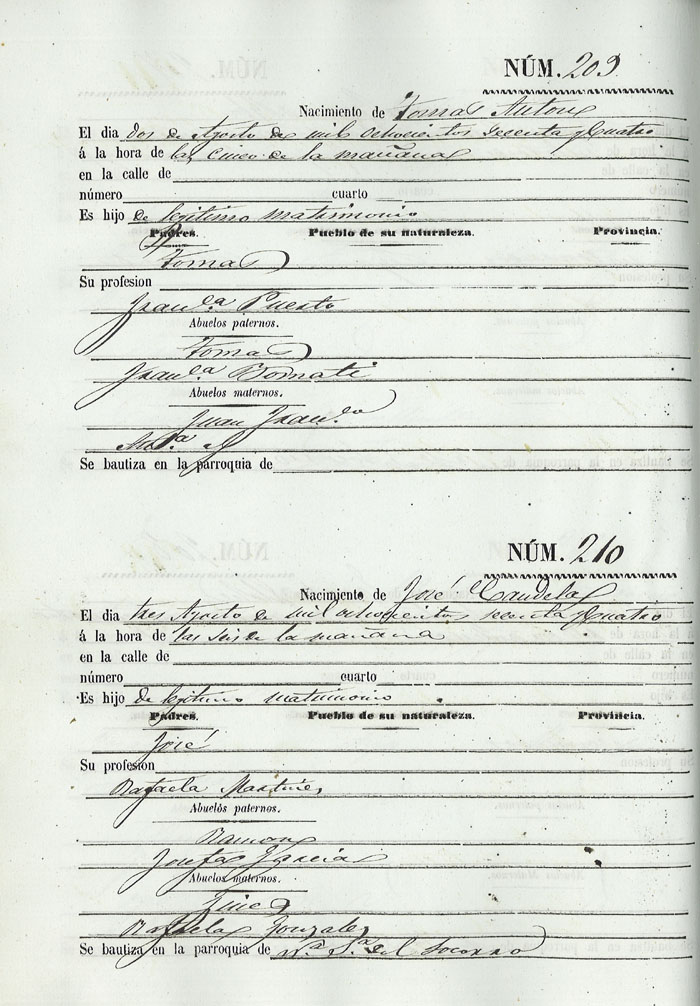 NÚM. 209
Nacimiento de Tomas Anton
El dia dos de Agosto de mil ochocientos sesenta y Cuatro
á la hora de las cinco de la mañana
en la calle de
número cuarto
Es hijo de legitimo matrimonio
Padres. Pueblo de su naturaleza. Provincia.
Tomas
Su profesion
Fran.ca Puerto
Abuelos paternos.
Tomas
Fran.ca Bernati
Abuelos maternos.
Juan Fran.co
Se bautiza en la parroquia de
NÚM. 210
Nacimiento de José Candela
El dia tres Agosto de mil ochocientos sesenta y Cuatro
á la hora de las seis de la mañana
en la calle de
número cuarto
Es hijo de legitimo matrimonio
Padres. Pueblo de su naturaleza. Provincia.
José
Su profesion
Rafaela Martines
Abuelos paternos.
Ramon
Josefa Garcia
Abuelos maternos.
Gines
Rafaela Gonzalez
Se bautiza en la parroquia de N.a S.a del Socorro